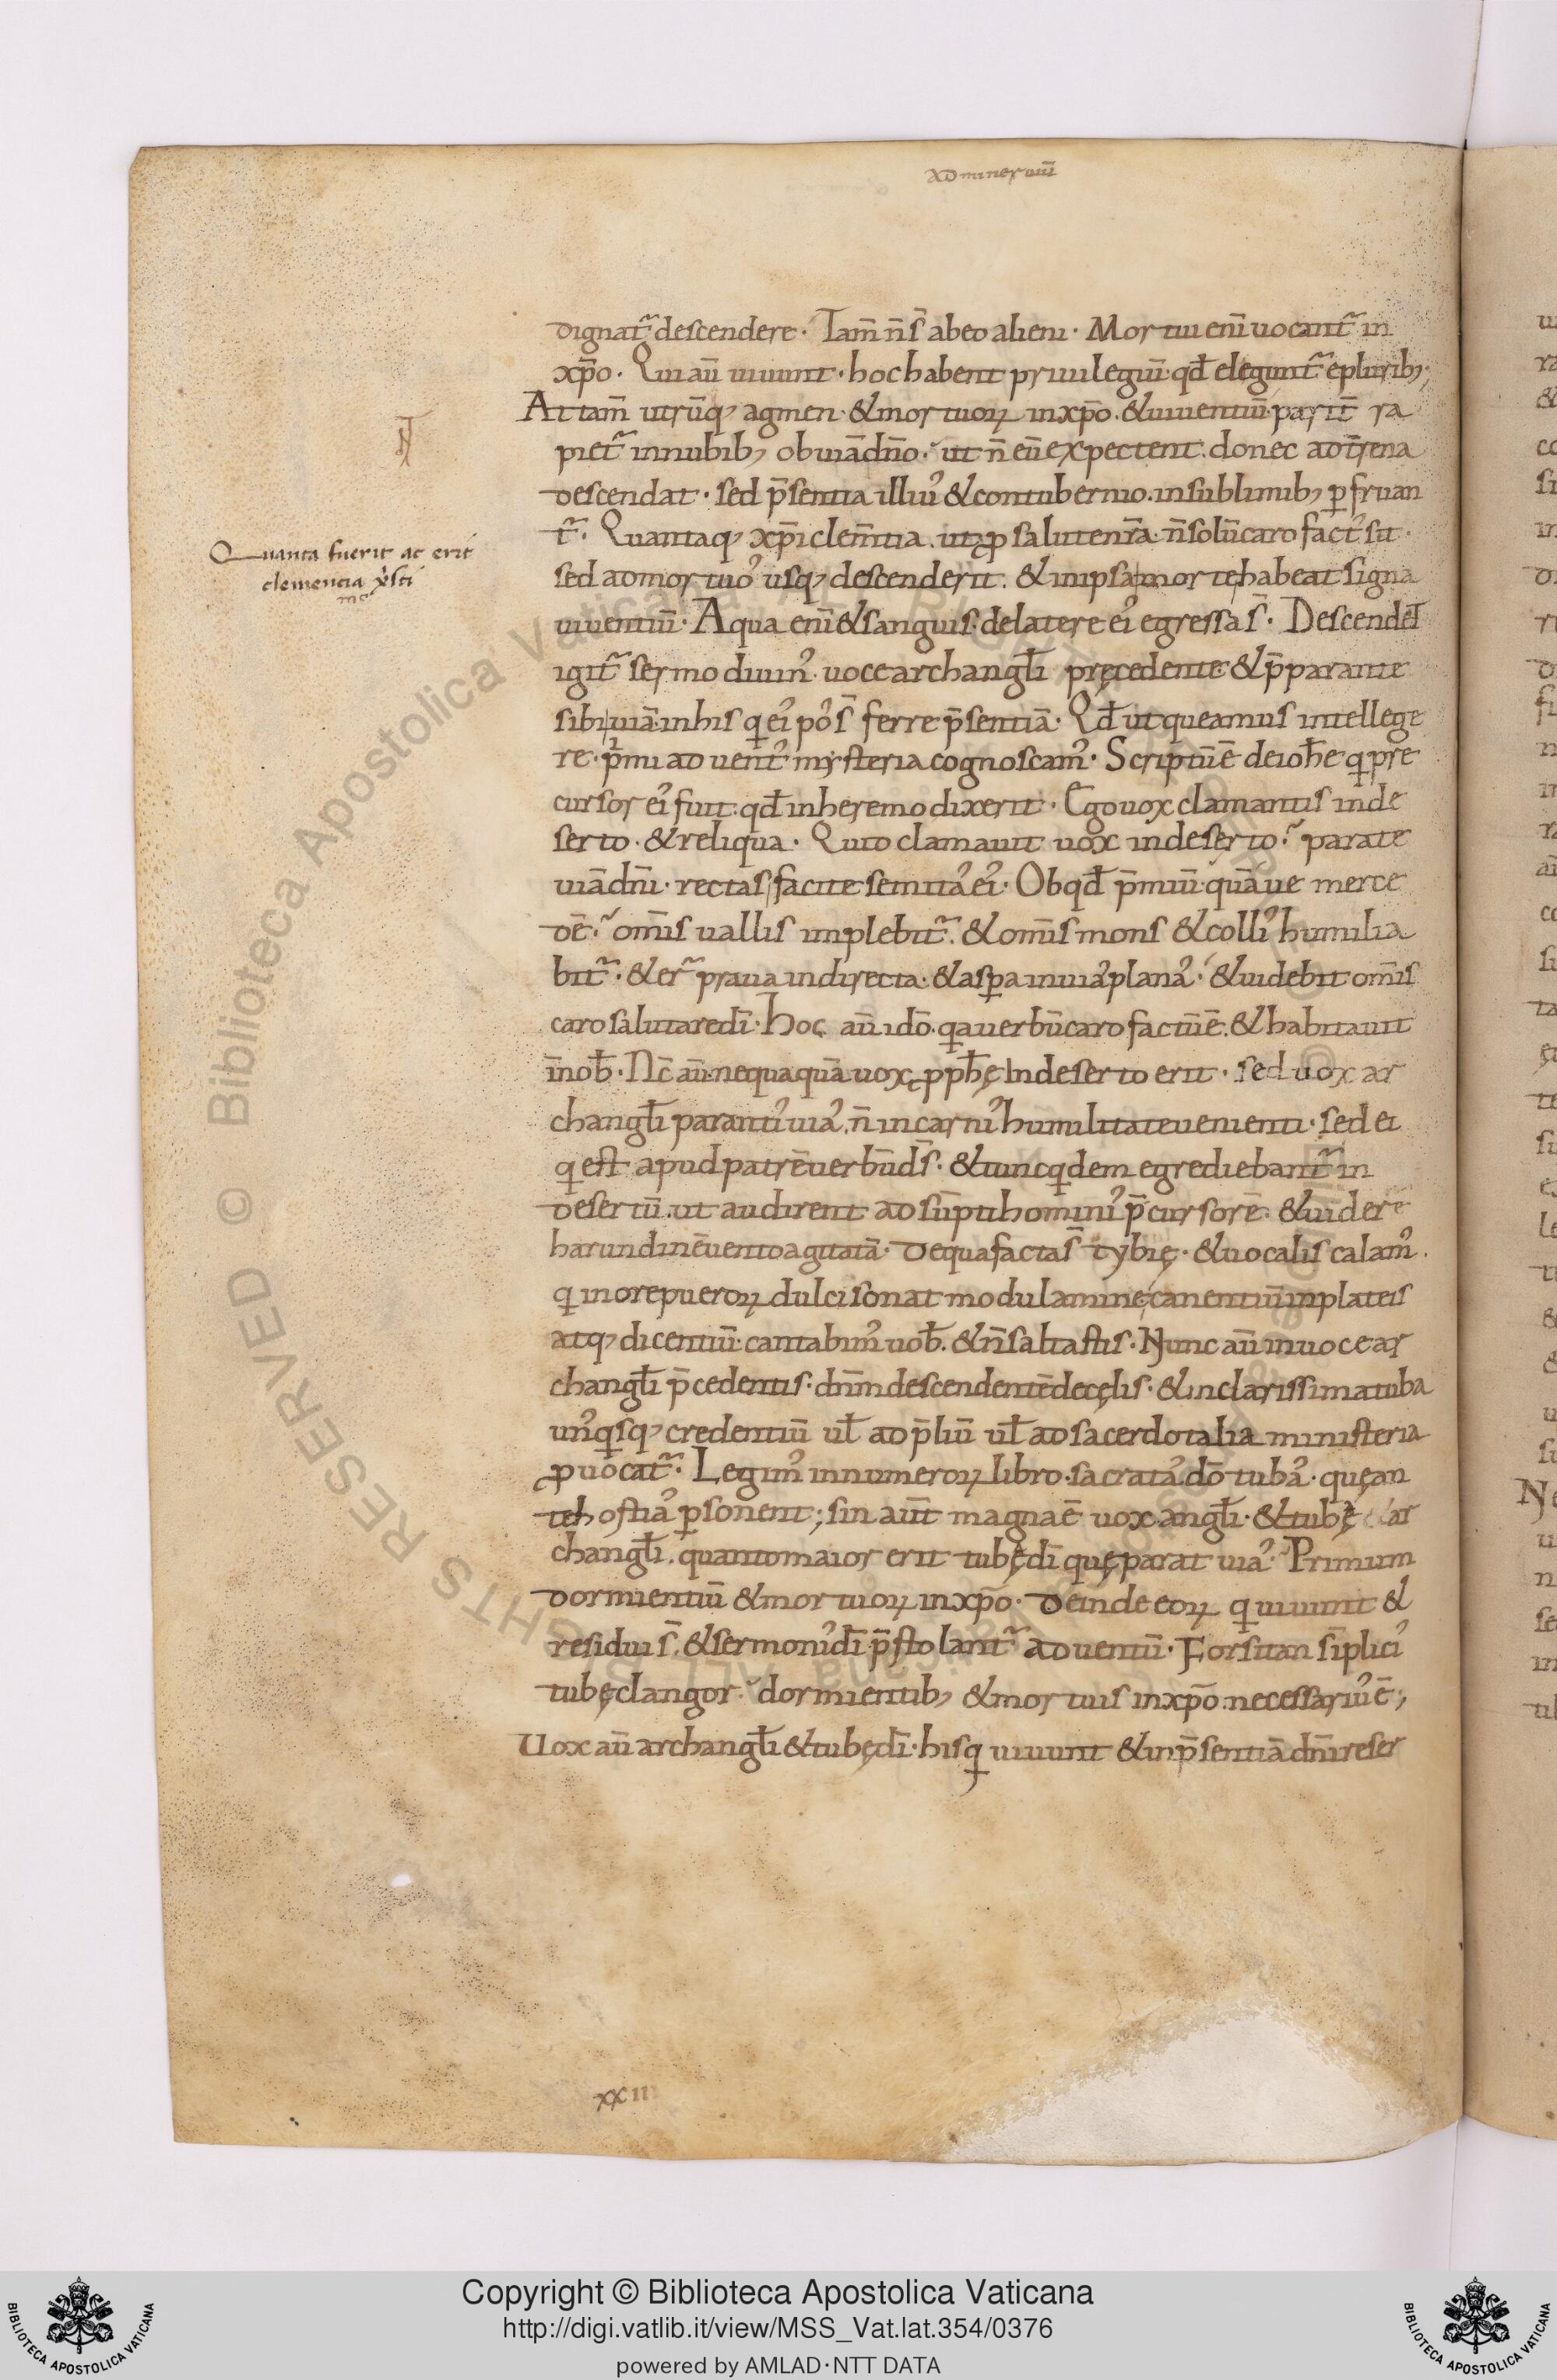 ad mineruiū
dignat᷑ descendere · Tam̄ n̄ s̄ ab eo alieni · Mortui eni᷑ uocant᷑ in
xp̄o · Qui aū uiuunt · hoc habent priuilegiū · qđ elegunt᷑ e plurib;
At tam̄ utrūq; agmen · & mortuoꝝ in xp̄o · & uiuentiū parit̄ ra
piet᷑ in nubib; obuiā dn̄o · ut n̄ eū expectent · donec ad t̄rena
descendat · sed p̄sentia illiu᷒ & contubernio · in sublimib; ꝑfruan
t᷑ · Quantaq; xp̄i clem̄tia · ut ꝓ salute nr̄a · n̄ solū caro fact᷒ sit ·
Quanta fuerit ac erit
clemencia xp̄sti
sed ad mortuo᷒ usq; descenderit · & in ipsa morte habeat signa
uiuentiū · Aqua eni᷑ & sanguis · de latere ei᷒ egressa s̄ · Descendet
igit᷑ sermo diuin᷒ · uoce archangl̄i pręcedente · & p̄parante
sibi uiā · in his q̇ ei᷒ po᷒s̄ ferre p̄sentiā · Qđ ut queamus intellege
re · pͥmi aduent᷒ mysteria cognoscam᷒ · Scriptū ē de ioħe q̇ pre
cursor ei᷒ fuit · qđ in heremo dixerit · Ego uox clamantis in de
serto · & reliqua · Quid clamauit uox in deserto · parate
uiā dn̄i · rectas facite semita᷒ ei᷒ · Ob qđ p̄miū · quā ue merce
dē · om̄is uallis implebit᷑ · & om̄is mons & colli᷒ humilia
bit᷑ · & er᷑ praua in directa · & asꝑa in uia᷒ plana᷒ · & uidebit om̄is
caro salutare dī · Hoc aū idō · q̇a uerbū caro factū ē · & habitauit
in nob̄ · Nc̄ aū nequaquā uox ꝓph̄ę in deserto erit · sed uox ar
changl̄i paranti᷒ uia᷒ · n̄ in carni᷒ humilitate uenienti · sed ei
q̇ est apud patrē uerbū ds̄ · & tunc q̇dem egrediebant᷑ in
desertū · ut audirent adsūpti homini᷒ p̄cursorē · & uidere
harundinē uento agitatā · de qua facta s̄ tybię · & uocalis calam᷒ ·
q̇ in ore pueroꝝ dulci sonat modulamine canentiū in plateis
atq; dicentiū · cantabim᷒ uob̄ · & n̄ saltastis · Nunc aū in uoce ar
changl̄i p̄cedentis · dn̄m descendentē de cęlis · & in clarissima tuba
un᷒q̇sq; credentiū ul̄ ad p̄liū ul̄ ad sacerdotalia ministeria
ꝓuocat᷑ · Legim᷒ in numeroꝝ libro · sacrata᷒ dō tuba᷒ · quę an
te hostia᷒ ꝑsonent ; sin aut̄ magna ē uox angl̄i · & tubę ar
changl̄i · quanto maior erit tubę dī quę parat uia᷒ · Primum
dormientiū & mortuoꝝ in xp̄o · deinde eoꝝ q̇ uiuunt &
residui s̄ · & sermoni᷒ dī p̄stolant᷑ aduentū · Forsitan sīplici᷒
tubę clangor · dormientib; & mortuis in xp̄o necessariu᷒ ē ;
Uox aū archangl̄i & tubę dī · his q̇ uiuunt & in p̄sentiā dn̄i reser
xxiii
Copyright © Biblioteca Apostolica Vaticana
http://digi.vatlib.it/view/MSS_Vat.lat.354/0376
powered by AMLAD·NTT DATA
BIBLIOTECA APOSTOLICA VATICANA
BIBLIOTECA APOSTOLICA VATICANA